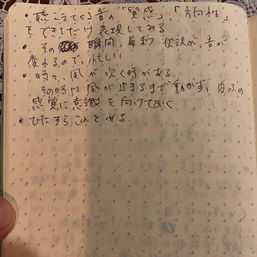 ・聴こえてくる音の"質感"、「方向性」
をできるだけ表現してみる
・その瞬間、毎秒 状況が、音が
変わるので、忙しい
・時々、風が吹く時がある。
その時は風が止まるまで動かず、
感覚に意識を向けておく
・ひたすら、これをやる。